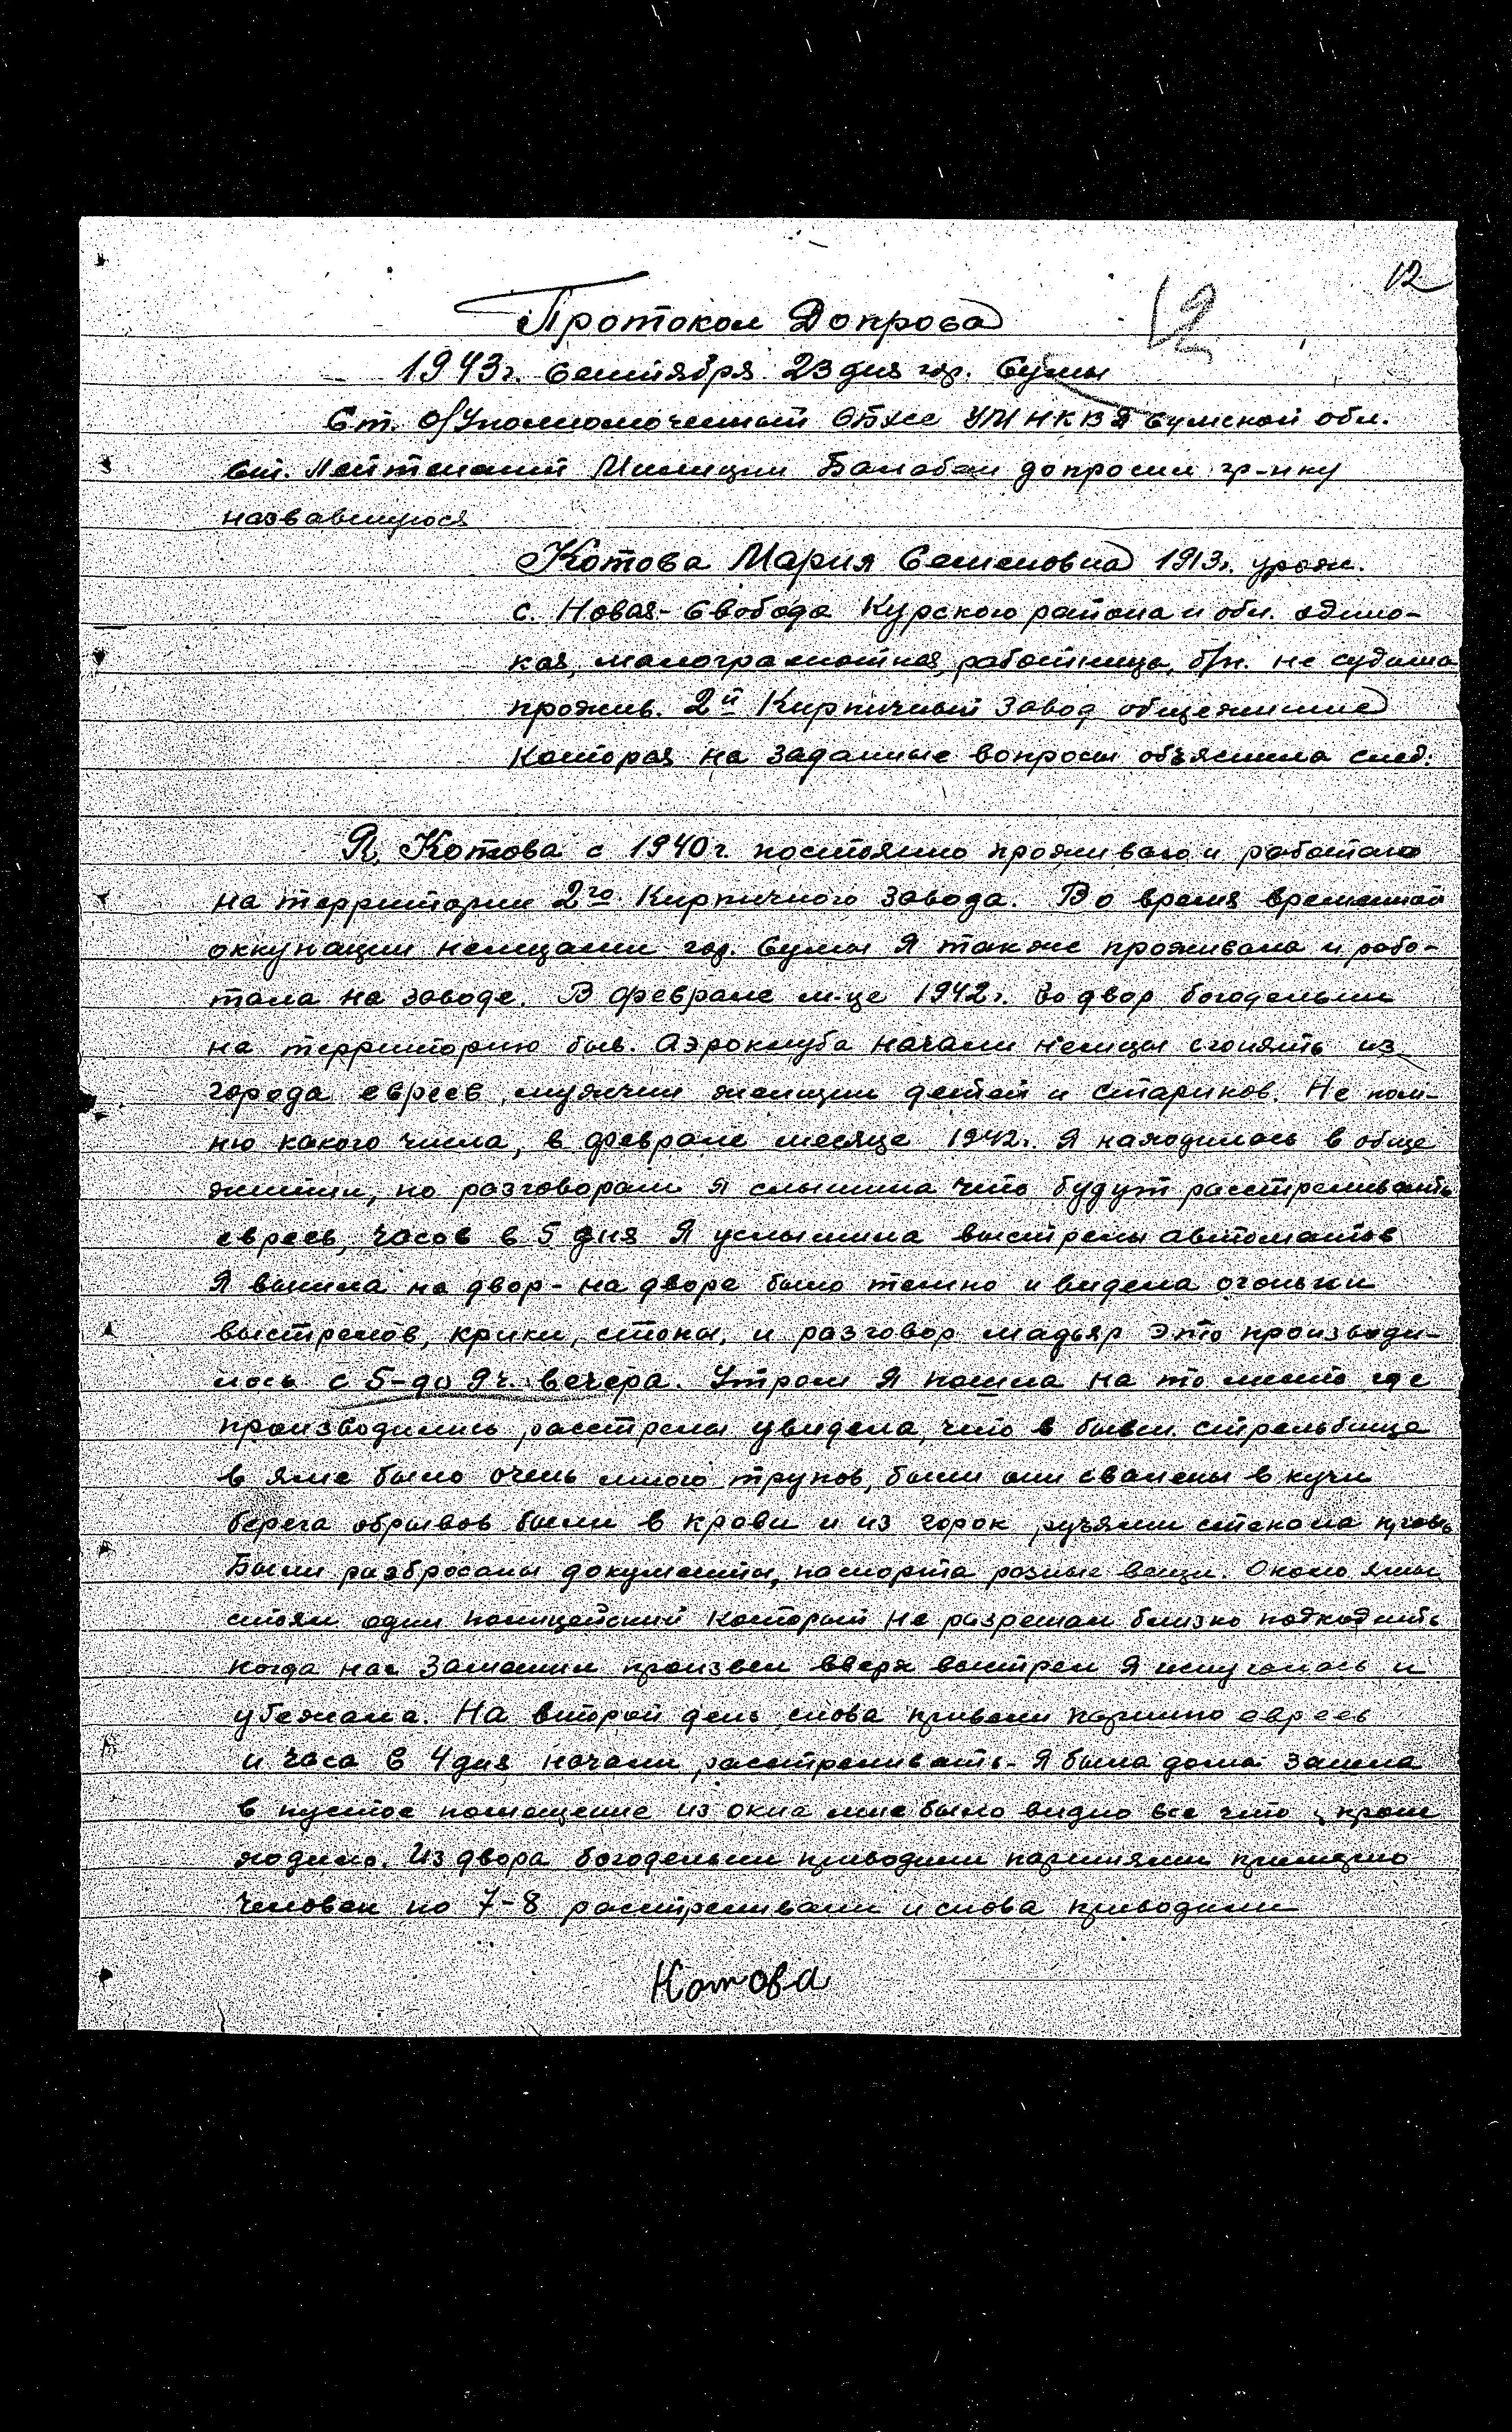 12
12
Протокол Допроса
1943г. Сентября 23 дня гор. Сумы
Ст. О/Уполномоченный ОБХСС УМ НКВД Сумской обл.
Ст. Лейтенант Милиции Балабан допросил гр-нку
назвавшуюся
Котова Мария Семеновна 1913г. урож.
с. Новая-Свобода Курского района и обл. одино-
кая, малограмотная, работница, б/п. не судима
прожив. 2й Кирпичный завод общежитие
Которая на заданные вопросы объяснила след:
Я, Котова с 1940г. постоянно проживаю и работаю
на территории 2го Кирпичного завода. Во время временной
оккупации немцами гор. Сумы Я также проживала и рабо-
тала на заводе. В феврале м-це 1942г. во двор богодельни
на территорию быв. Аэроклуба начали немцы сгонять из
города евреев, мужчин женщин детей и стариков. Не пом-
ню какого числа, в феврале месяце 1942г. Я находилась в обще
житии, по разговорам Я слышила что будут расстреливать
евреев, часов в 5 дня Я услышила выстрелы автоматов
Я вышла на двор - на дворе было темно и видела огоньки
выстрелов, крики, стоны, и разговор мадьяр Это производи-
лось с 5-до 9ч. вечера. Утром Я пошла на то место где
производились расстрелы увидела, что в бывш. стрельбище
в яме было очень много трупов, были они свалены в кучи
берега обрывов были в крови и из горок ручьями стекала кровь
Были разбросаны документы, паспорта разные вещи. Около ямы
стоял один полицейский который не разрешал близко подходить
когда нас заметил произвел вверх выстрел Я испугалась и
убежала. На второй день снова привели партию евреев
и часа в 4 дня начали расстреливать - Я была дома зашла
в пустое помещение из окна мне было видно все что проис
ходило. Из двора богодельни приводили партиями примерно
человек по 7-8 расстреливали и снова приводили
Котова